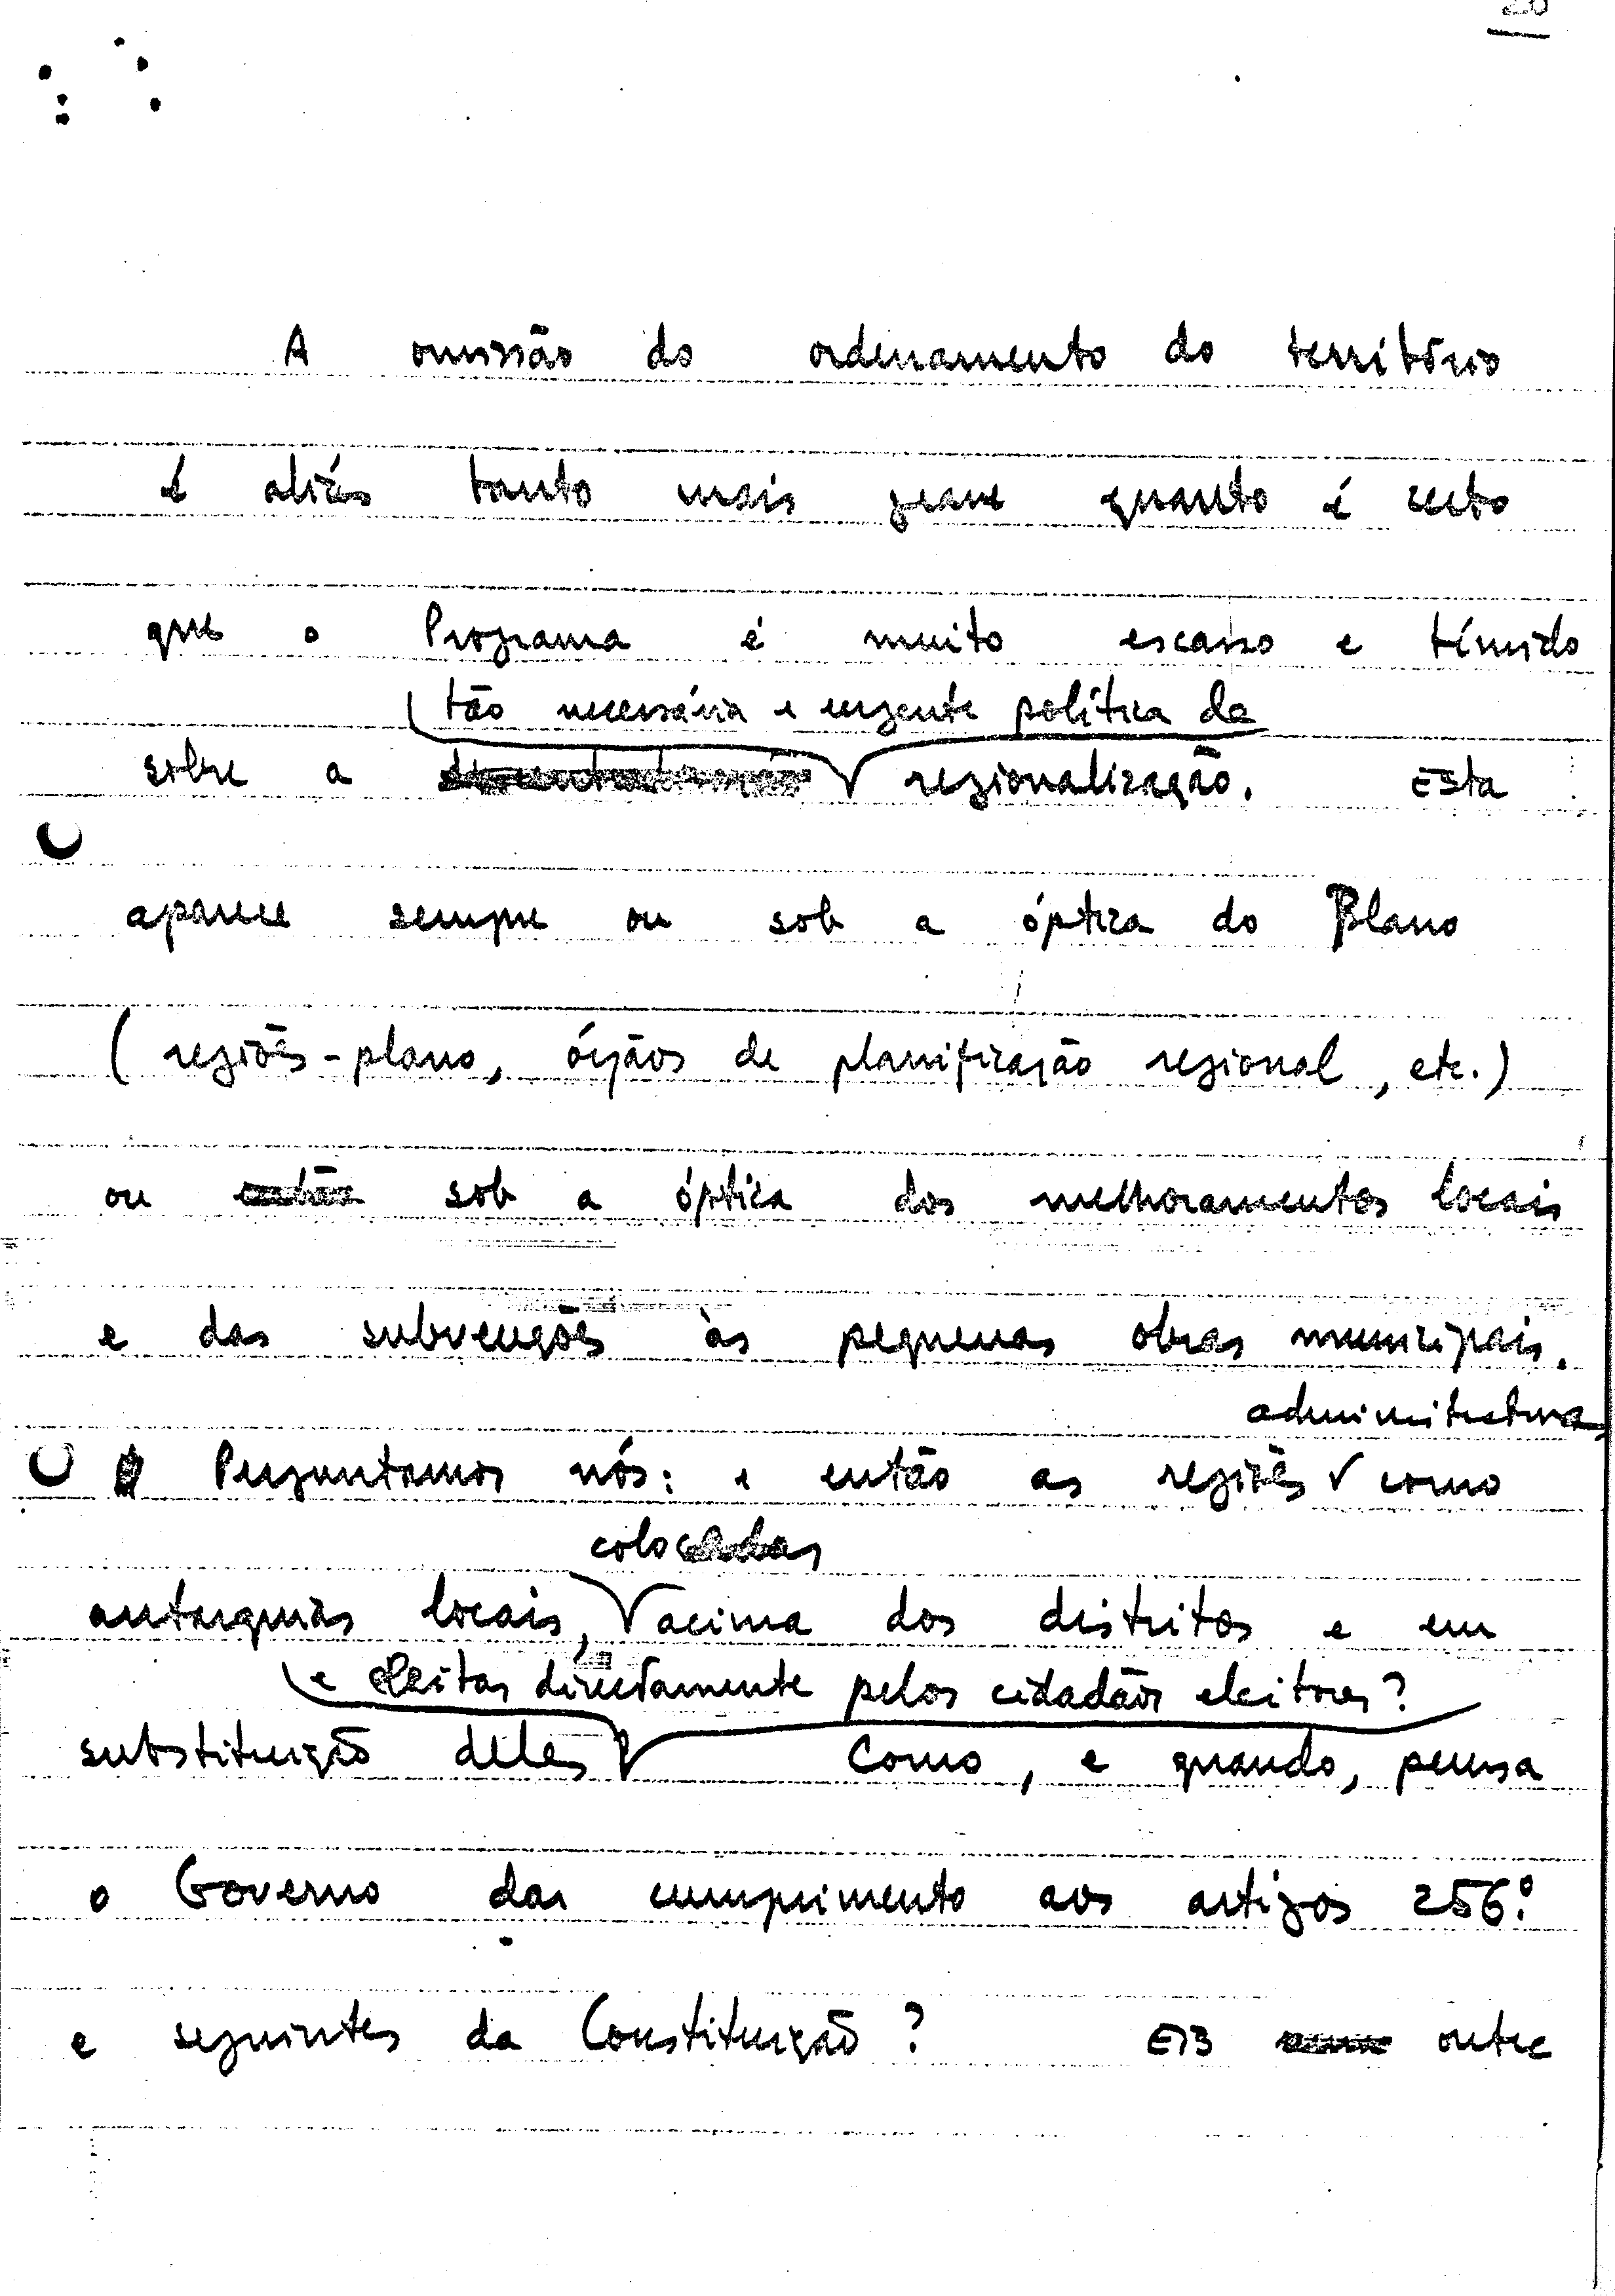 A omissão do ordenamento do território
é aliás tanto mais grave quanto é certo
que o Programa é muito escasso e tímido
tão necessária e urgente política de
sobre a regionalização. Esta
aparece sempre ou sob a óptica do Plano
(regiões-plano, órgãos de planificação regional, etc.)
ou então sob a óptica dos melhoramentos locais
e das subvenções às pequenas obras municipais.
administrativas,
Perguntamos nós: e então as regiões como
colocadas
autarquias locais, acima dos distritos e em
e eleitas directamente pelos cidadãos eleitores?
substituição deles Como, e quando, pensa
o Governo dar cumprimento aos artigos 256.º
e seguintes da Constituição? Eis outra